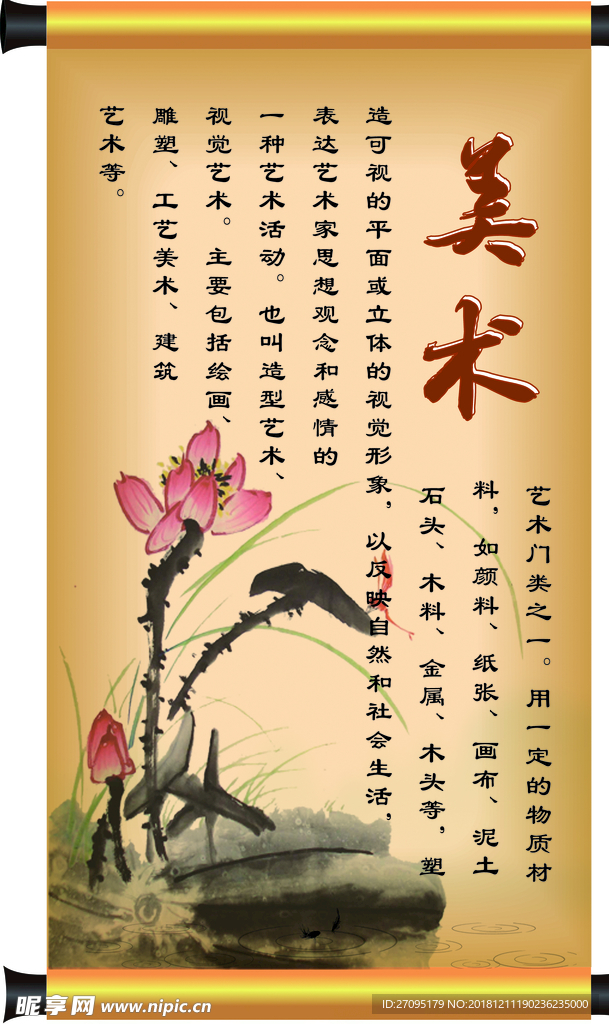 美术
艺术门类之一。用一定的物质材
料，如颜料、纸张、画布、泥土
石头、木料、金属、木头等，塑
造可视的平面或立体的视觉形象，以反映自然和社会生活，
表达艺术家思想观念和感情的
一种艺术活动。也叫造型艺术、
视觉艺术。主要包括绘画、
雕塑、工艺美术、建筑
艺术等。
昵享网 www.nipic.cn
ID:27095179 NO:20181211190236235000